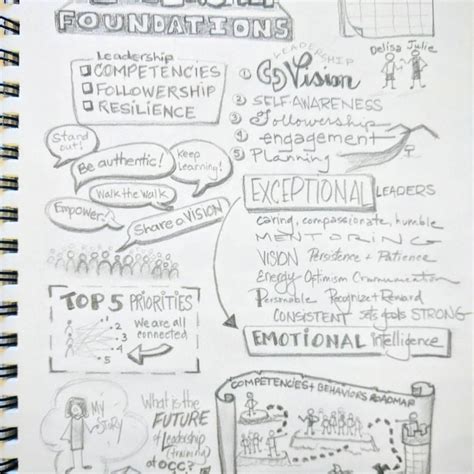 FOUNDATIONS
Leadership
COMPETENCIES
FOLLOWERSHIP
RESILIENCE
LEADERSHIP
Delisa Julie
① Vision
② SELF-AWARENESS
③ Followership
④ engagement
⑤ Planning
Stand out!
Be authentic!
Keep Learning!
Walk the Walk
Empower!
Share a VISION
EXCEPTIONAL LEADERS
caring, compassionate, humble
MENTORING
VISION Persistence + Patience
Energy Optimism Communication
Personable Recognize + Reward
CONSISTENT sets goals STRONG
EMOTIONAL Intelligence
TOP 5 PRIORITIES
1
2
3
4
5
We are all
connected
MY
STORY
What is the
FUTURE
of Leadership
(training)
at OCC?
COMPETENCIES + BEHAVIORS ROADMAP